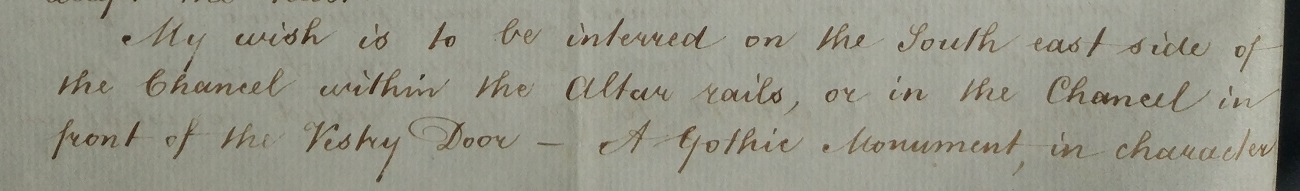 My wish is to be interred on the South east side of
the Chancel within the Altar rails, or in the Chancel in
front of the Vestry Door – A Gothic Monument, in character